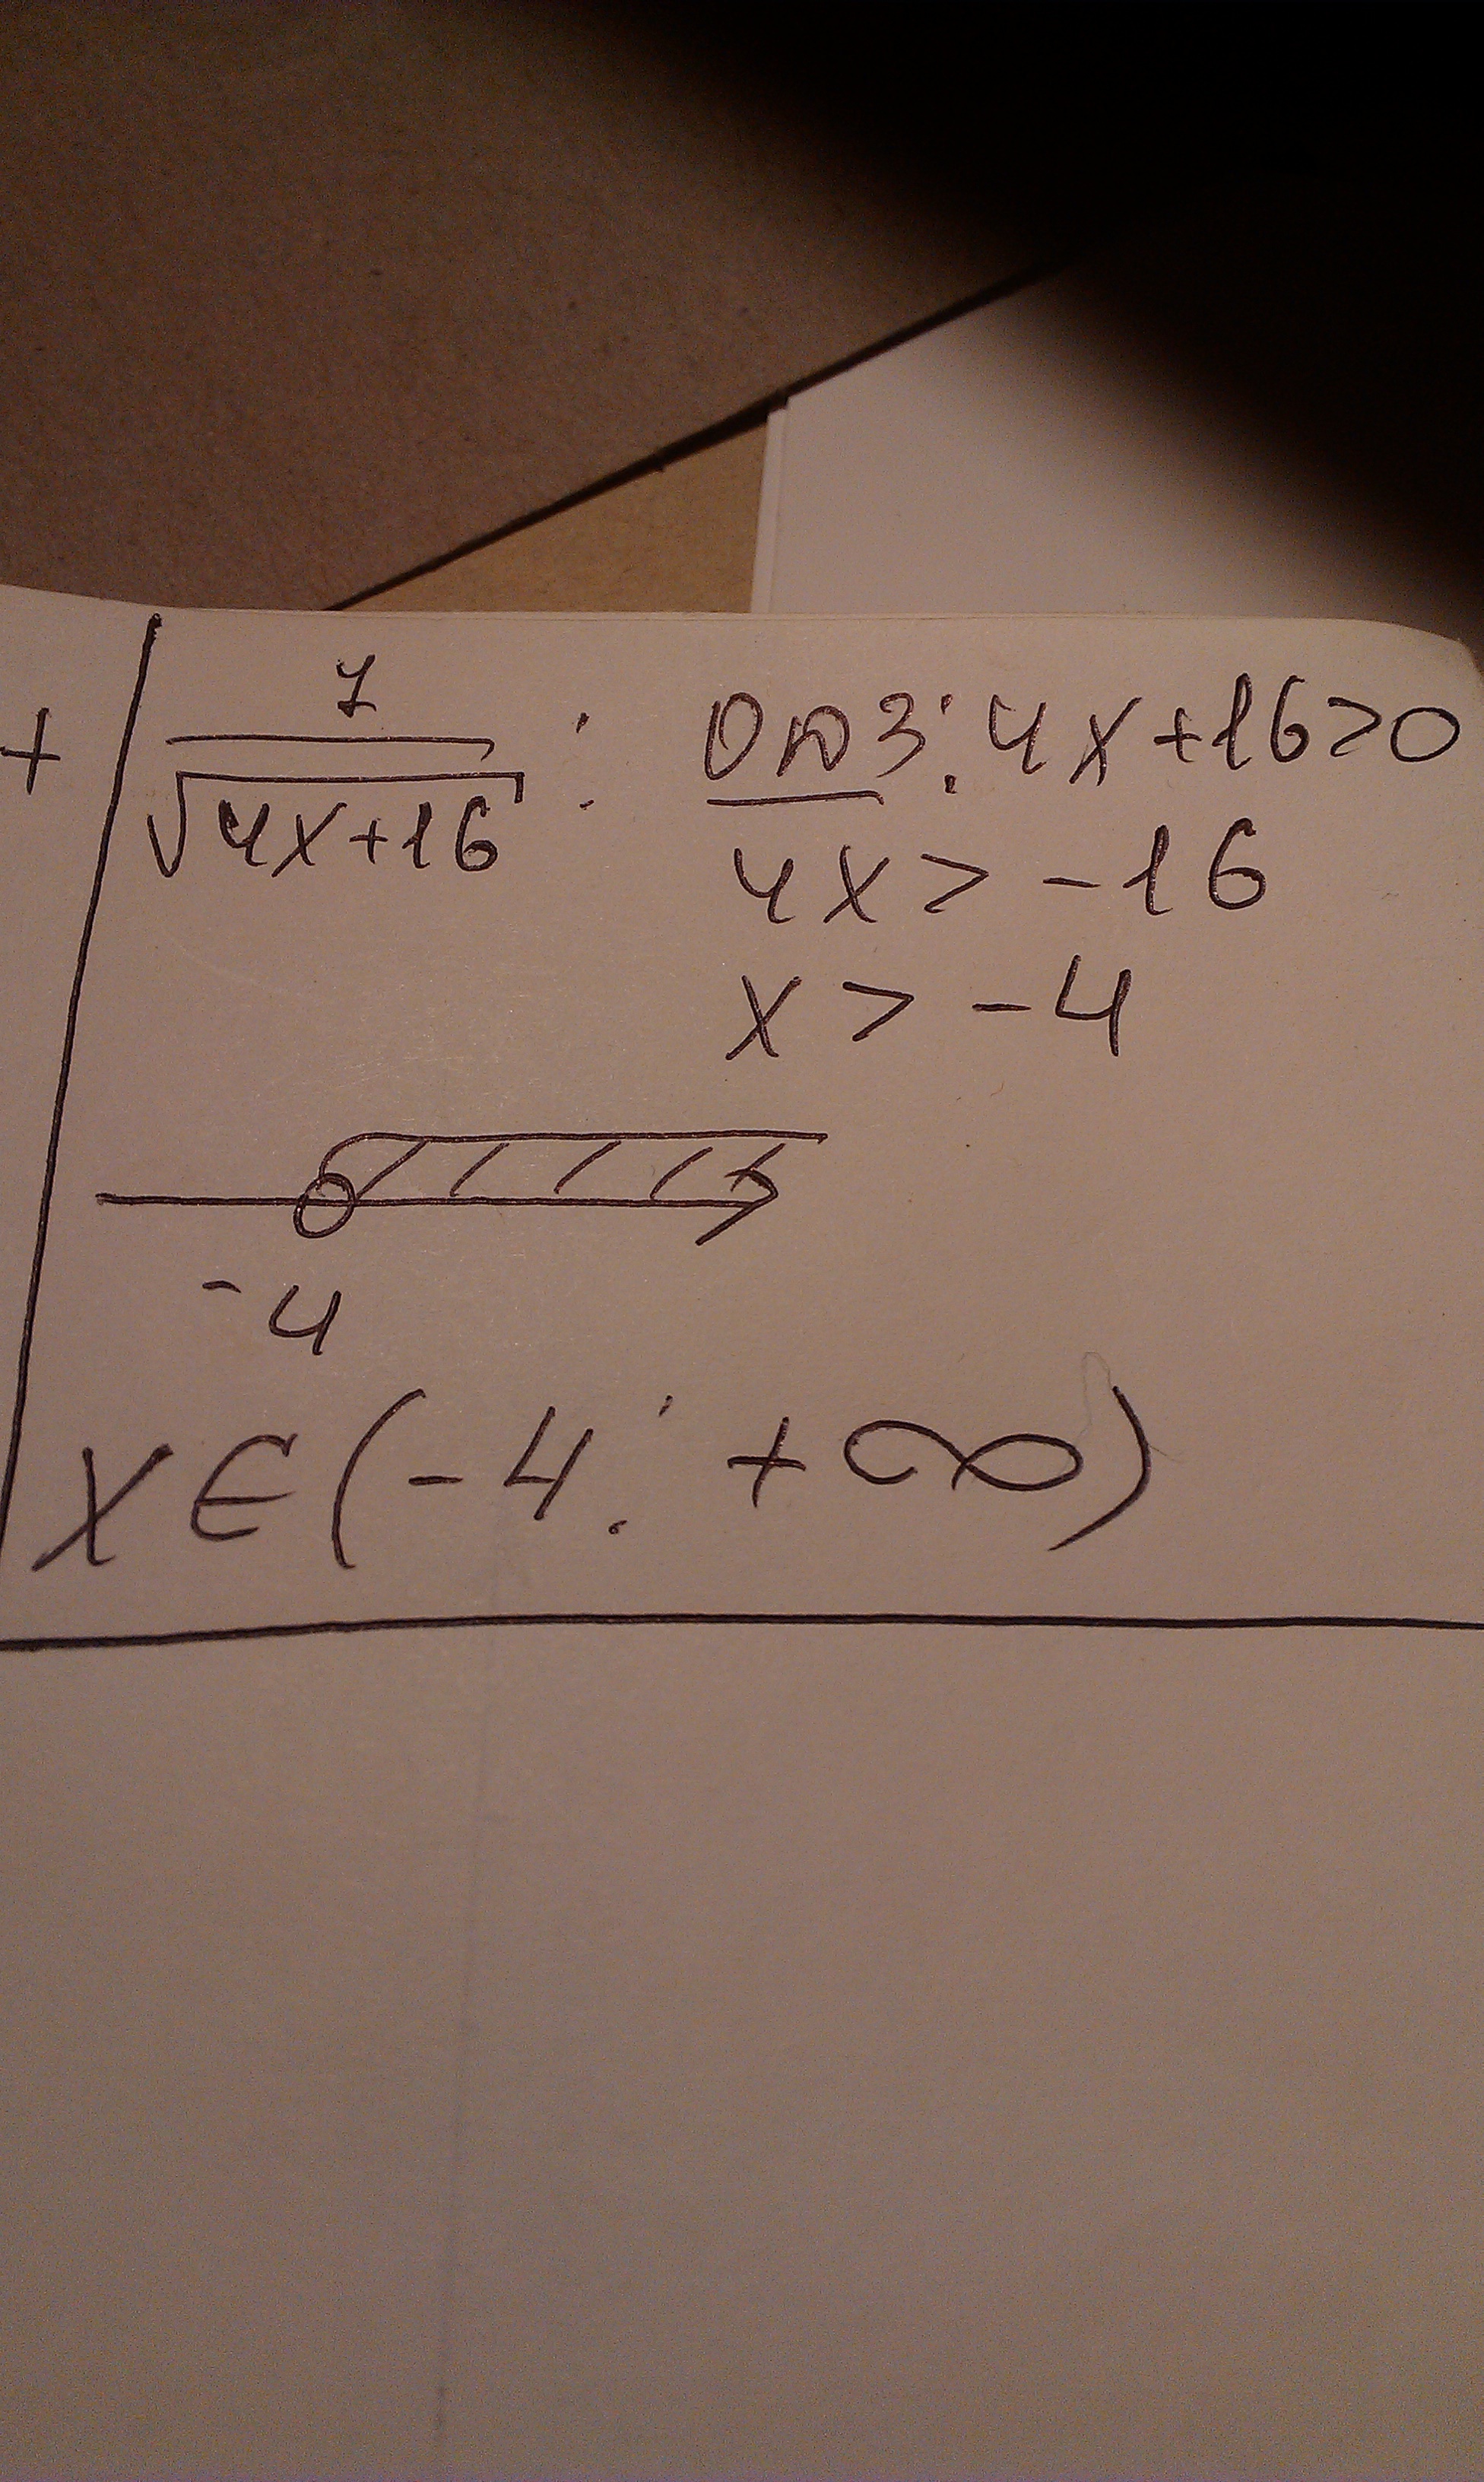 + 1/√(4x+16) : ОДЗ: 4x+16>0
4x > -16
x > -4
-4
x∈(-4; +∞)